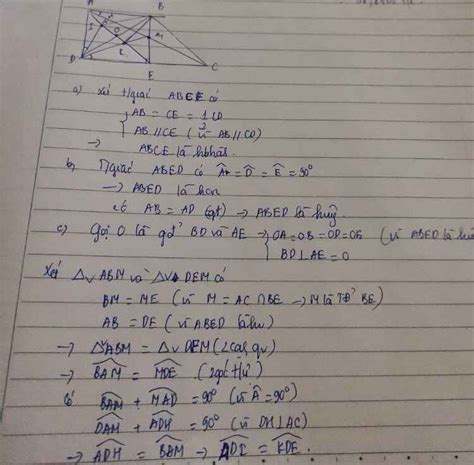 A B
I O M
K
D E C
a) Xét t/giác ABCE có
AB = CE = 1/2 CD
AB // CE (vì AB // CD)
→ ABCE là hbhành.
b) T/giác ABED có Â = D̂ = Ê = 90°
→ ABED là hcn
có AB = AD (gt) → ABED là hvg.
c) Gọi O là gđ' BD và AE → OA = OB = OD = OE (vì ABED là hv
BD ⊥ AE = O
Xét Δv ABM và Δv DEM có
BM = ME (vì M = AC ∩ BE → M là TĐ BE)
AB = DE (vì ABED là hv)
→ Δv ABM = Δv DEM (2 cạh gv)
→ BAM = MDE. (2 góc t/ứ)
Có BAM + MAD = 90° (vì Â = 90°)
DAM + ADH = 90° (vì DH ⊥ AC)
→ ADH = BAM → ADI = KDE.